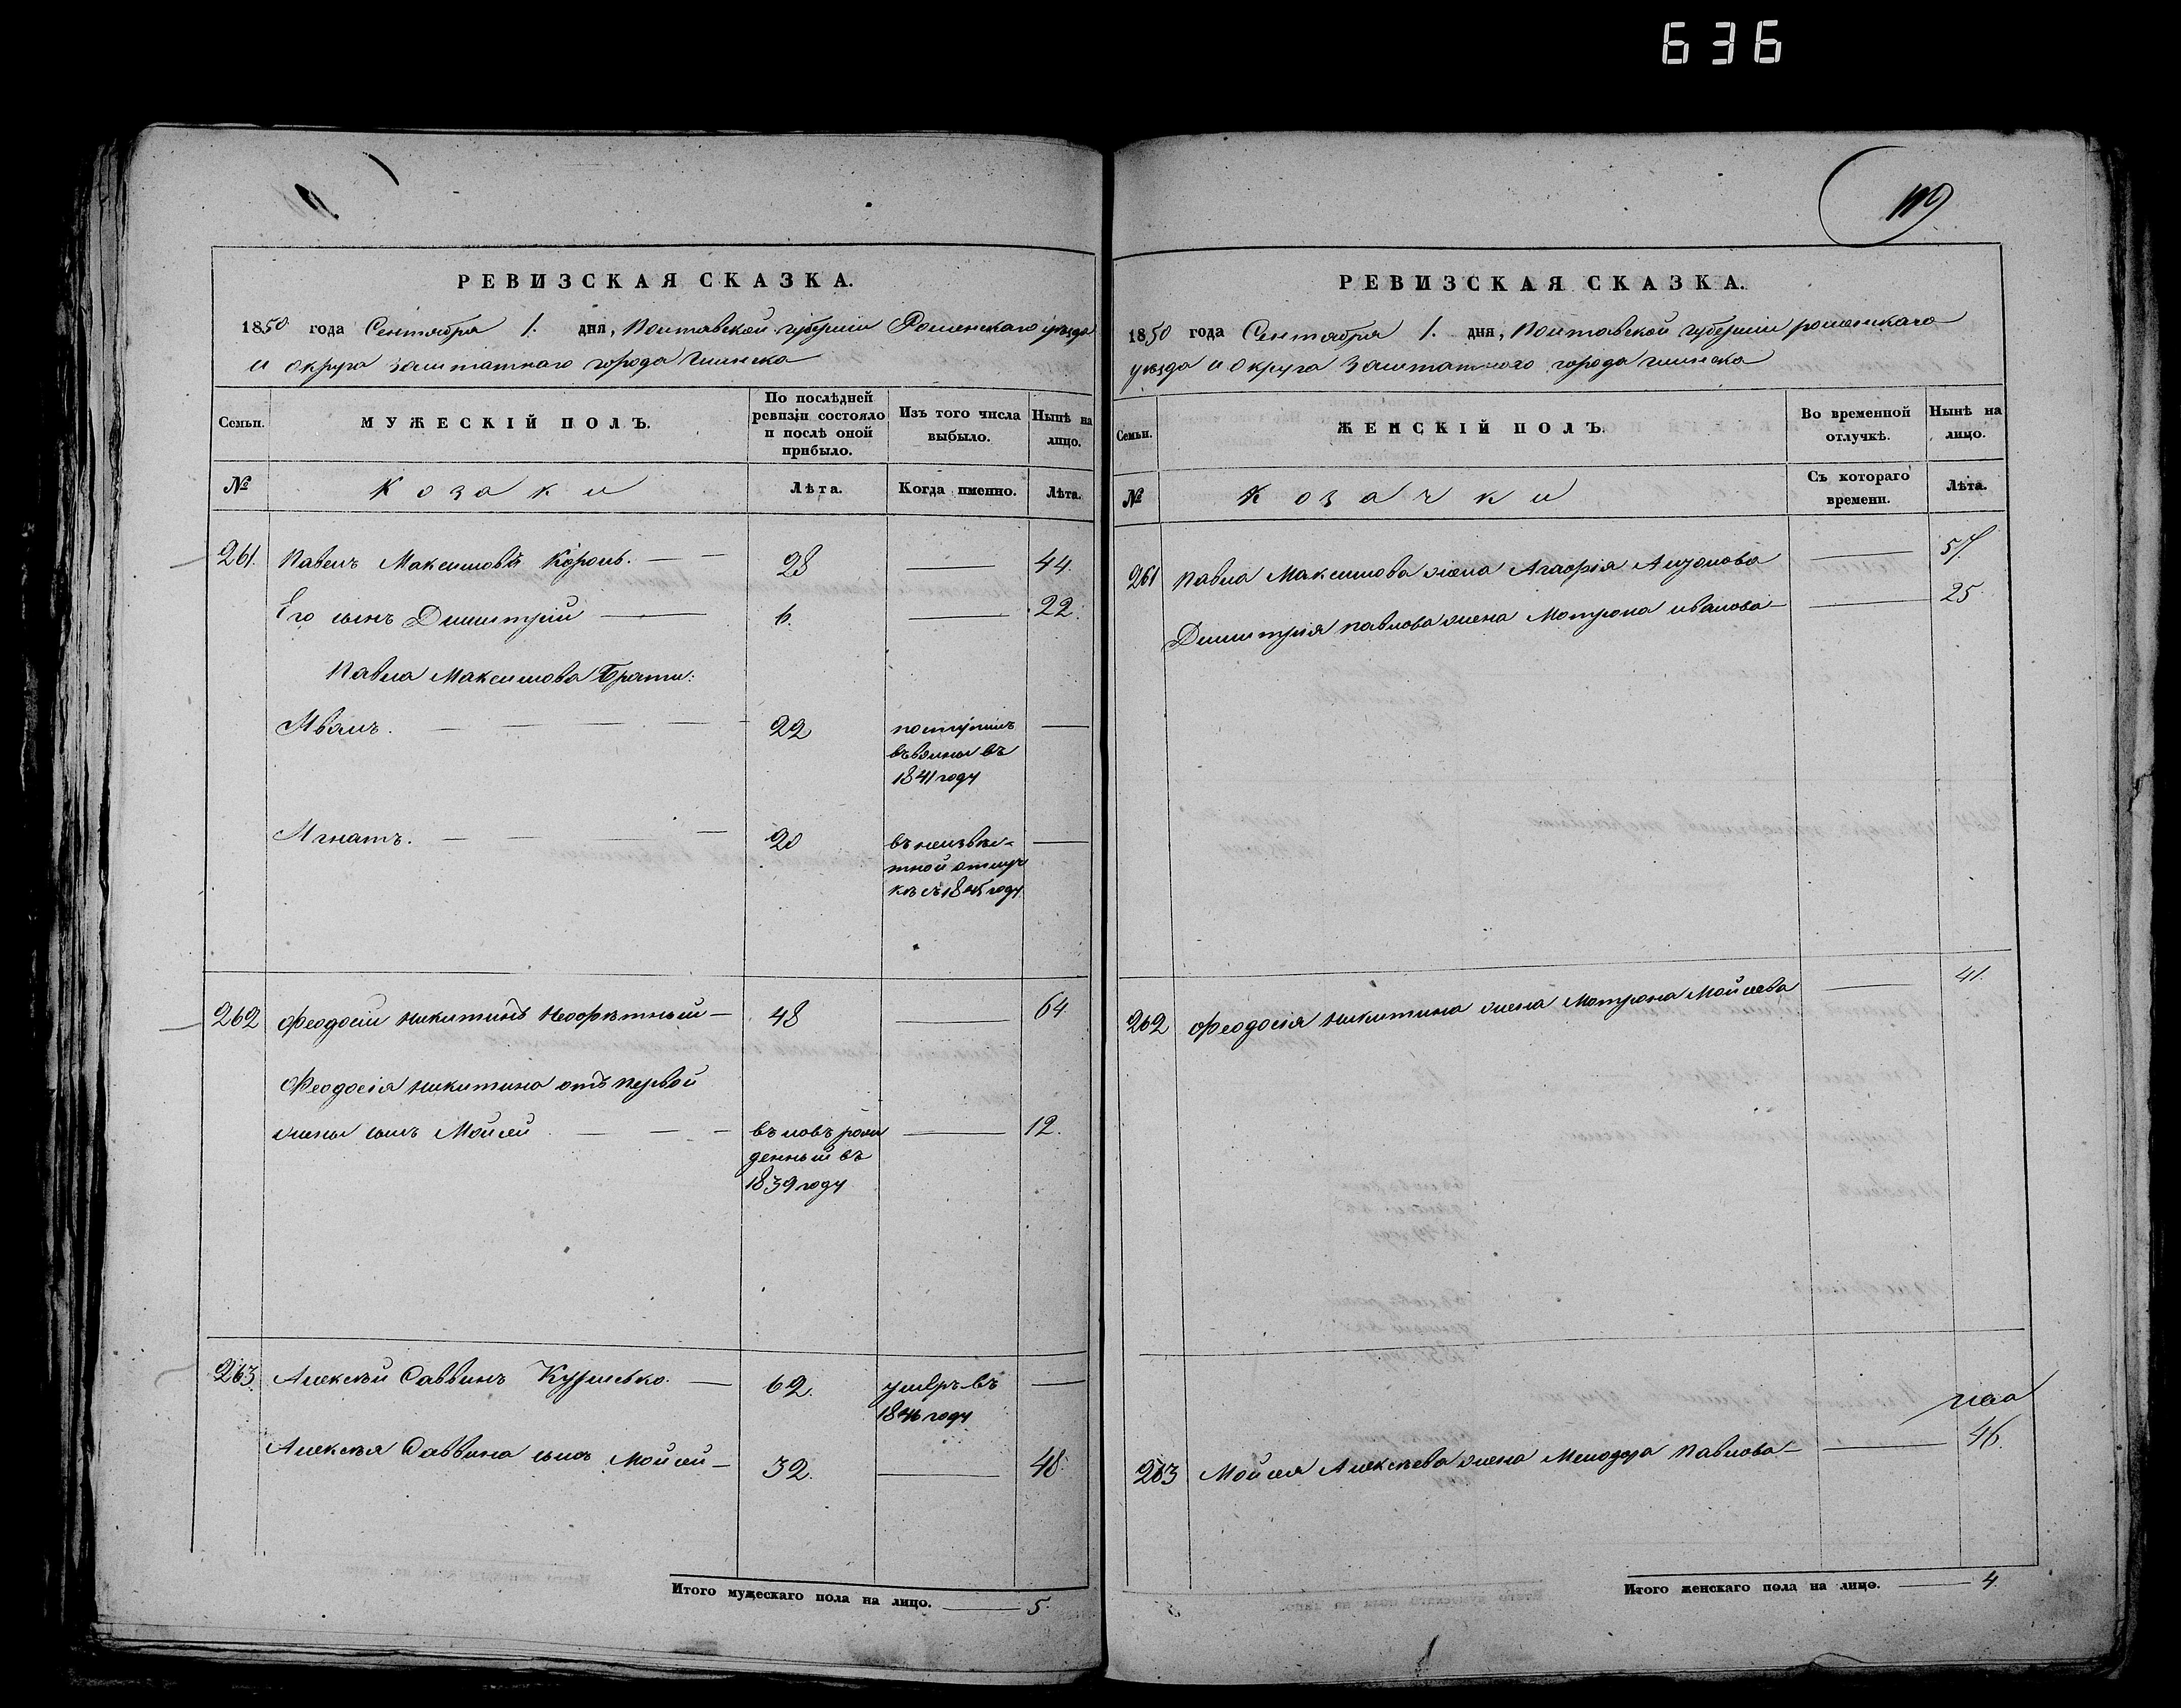 636
119
РЕВИЗСКАЯ СКАЗКА.
1850 года Сентября 1. дня, Полтавской губернии Роменскаго уѣзда
и округа заштатнаго города Глинска
Семьи.
МУЖЕСКІЙ ПОЛЪ.
По послѣдней ревизіи состояло и послѣ оной прибыло.
Изъ того числа выбыло.
Нынѣ на лицо.
№
Козаки
Лѣта.
Когда именно.
Лѣта.
261. Павелъ Максимовъ Король. 28 44.
Его сынъ Димитрій 6. 22.
Павла Максимова Братья:
Иванъ. 22 поступилъ
въ воины въ
1841 году
Игнатъ. 20 въ неизвѣс-
тной отлуч
кѣ съ 1845 году
262 Феодосій Никитинъ 48 64
Феодосія Никитина отъ первой
жены сынъ Мойсей въ новъ рож
денный въ
1839 году 12.
263. Алексѣй Саввинъ 62. умеръ въ
1846 году
Алексѣя Саввина сынъ Мойсей 32. 48.
Итого мужескаго пола на лицо. 5.
РЕВИЗСКАЯ СКАЗКА.
1850 года Сентября 1. дня, Полтавской губерніи роменскаго
уѣзда и округа Заштатного города глинска
Семьи.
ЖЕНСКІЙ ПОЛЪ.
Во временной отлучкѣ.
Нынѣ на лицо.
№
Козачки
Съ котораго времени.
Лѣта.
261 Павла Максимова жена Агафія
Димитрія павлова жена Мотрона иванова 25.
262 Феодосія Никитина жена Мотрона Мойсеева 41.
263 Мойсея Алексѣева жена Мелодора Павлова 46.
Итого женскаго пола на лицо. 4.